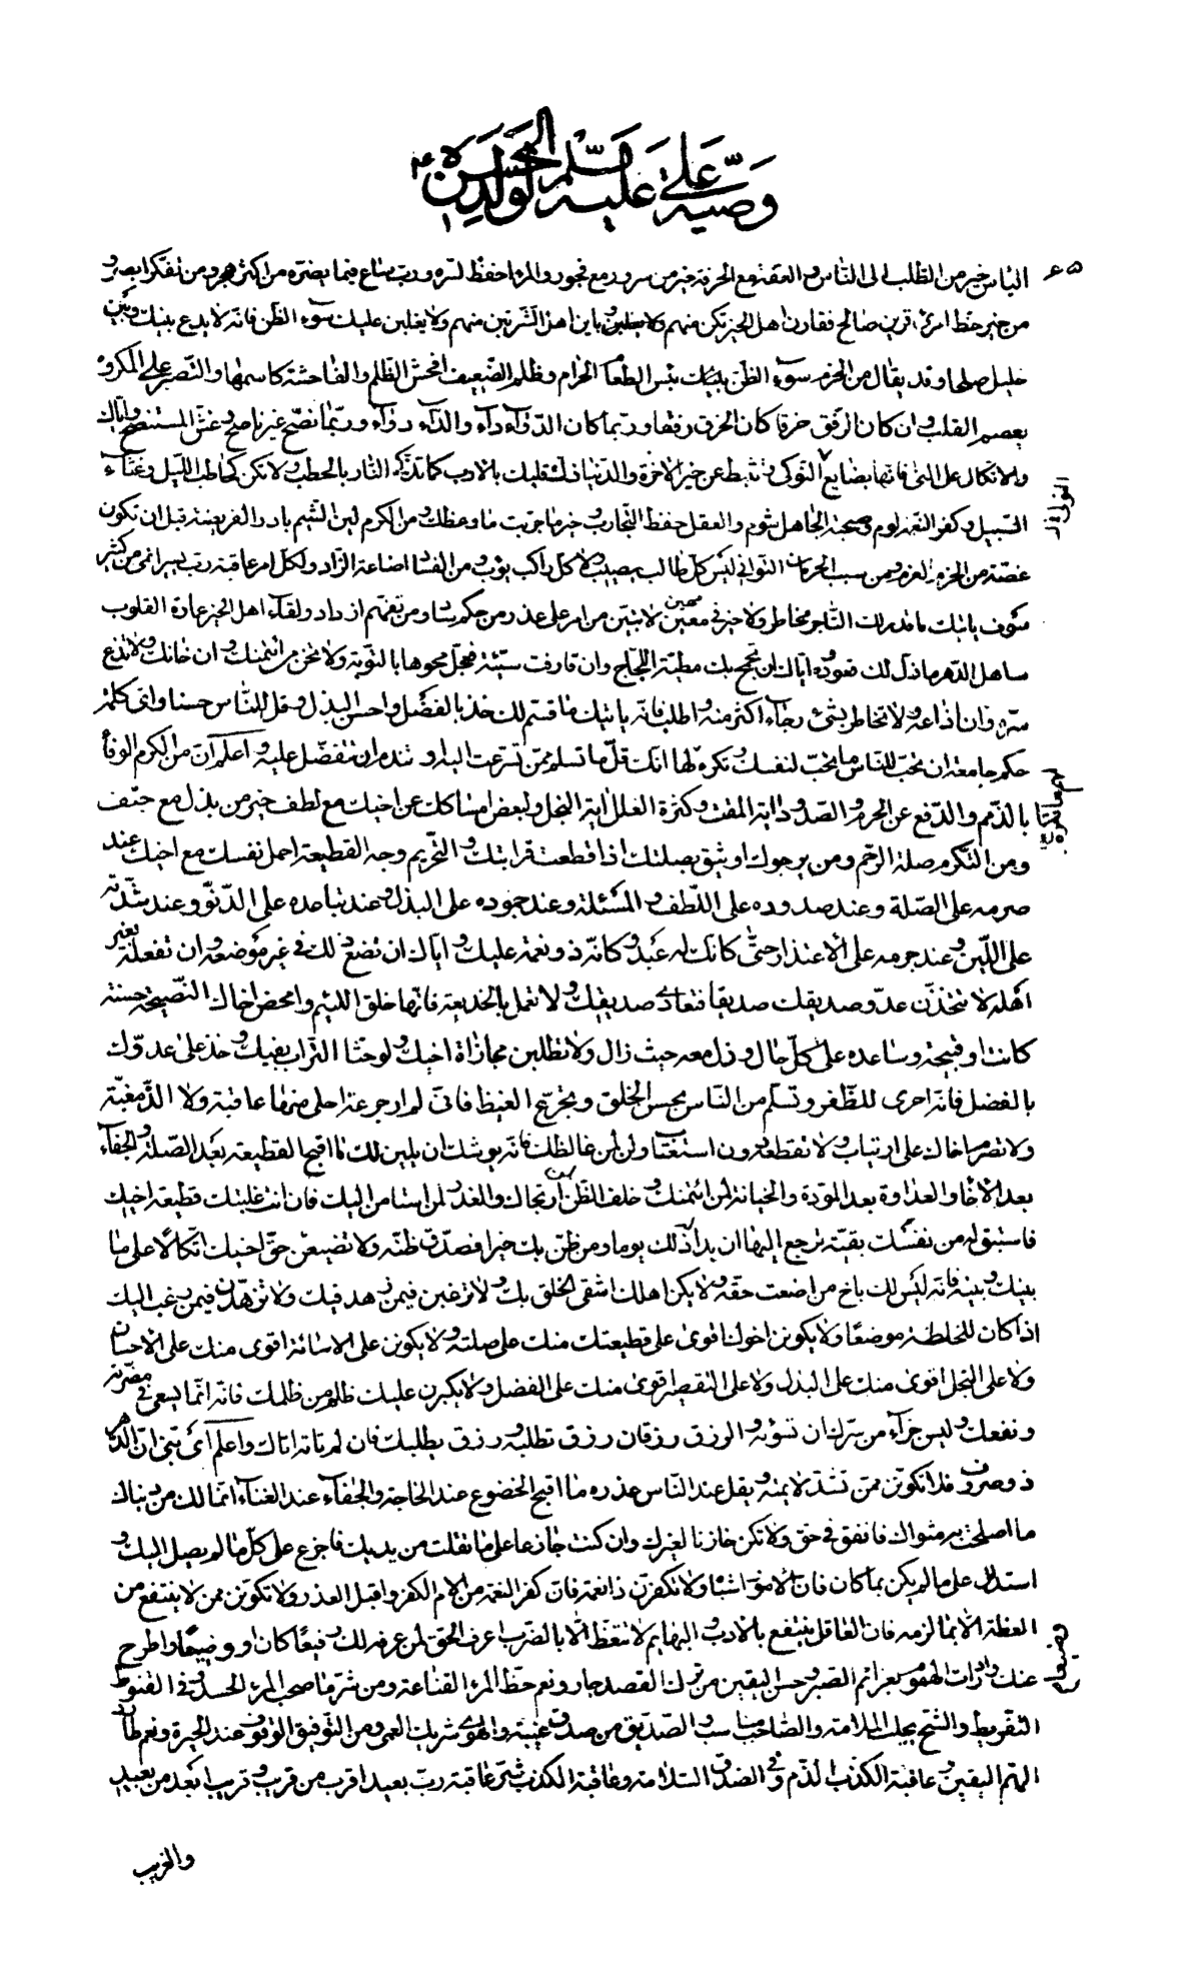 وصيّة علي عليه السّلم لولده الحسن ع
۶۵
الياس خير من الطلب الى الناس و العفة مع الحرفة خير من سرور مع فجور و المرء احفظ لسرّه و ربّ ساع فيما يضرّه من اكثر هجر و من تفكر ابصر و
من خير حظ امرئ قرين صالح فقارن اهل الخير تكن منهم و باين اهل الشر تبن منهم و لا يغلبن عليك سوء الظن فانه لا يدع بينك و بين
خليل صلحا و قد يقال من الحزم سوء الظن بئس الطعام الحرام و ظلم الضعيف افحش الظلم و الفاحشة كاسمها و التصبر على المكروه
يعصم القلب و ان كان الرفق خرقا كان الخرق رفقا و ربما كان الدّوآء دآء و الدّآء دوآء و ربّما نصح غير ناصح و غشّ المستنصح و اياك
و الاتكال على المنى فانها بضايع النوكى و تثبط عن خير الاخرة و الدنيا ذك قلبك بالادب كما تذكى النار بالحطب و لا تكن كحاطب الليل و غثآء
السيل و كفر النعمة لوم و صحبة الجاهل شوم و العقل حفظ التجارب و خير ما جربت ما وعظك و من الكرم لين الشيم بادر الفرصة قبل ان تكون
غصّة من الحزم العزم و من سبب الحرمان التوانى ليس كل طالب يصيب و لا كل راكب يؤب و من الفساد اضاعة الزاد و لكل امر عاقبة ربّ يسير انمى من كثير
سوف ياتيك ما قدر لك التاجر مخاطر و لا خير فى معين مهين لا تبيتن من امر على عذر من حكم ساد و من تفهم ازداد و لقاء اهل الخير عمارة القلوب
ساهل الدهر ما ذل لك قعوده و اياك ان تجمح بك مطية اللجاج و ان قارفت سيّئة فعجل محوها بالتوبة و لا تخن من ائتمنك و ان خانك و لا تذع
سرّه و ان اذاعه و لا تخاطر بشئ رجاء اكثر منه و اطلب فانه ياتيك ما قسم لك خذ بالفضل و احسن البذل و قل للناس حسنا و اى كلمة
حكم جامعة ان تحبّ للناس ما تحبّ لنفسك و تكره لها انك قلّ ما تسلم ممن تسرعت اليه او تندم ان تفضل عليه و اعلم ان من الكرم الوفآء
بالذمم و الدفع عن الحرم و الصدود اية المقت و كثرة العلل اية البخل و لبعض امساكك عن اخيك مع لطف خير من بذل مع جنف
و من التكرم صلة الرحم و من يرجوك او يثق بصلتك اذا قطعت قرابتك و التحريم وجه القطيعة احمل نفسك مع اخيك عند
صرمه على الصّلة و عند صدوده على اللّطف و المسئلة و عند جموده على البذل و عند تباعده على الدّنوّ و عند شدّته
على اللّين و عند جرمه على الاعتذار حتّى كانّك له عبد و كانّه ذو نعمة عليك و ايّاك ان تضع ذلك فى غير موضعه و ان تفعله بغير
اهله لا تتخذن عدوّ صديقك صديقا فتعادى صديقك و لا تعمل بالخديعة فانّها خلق اللئيم و امحض اخاك النّصيحة حسنة
كانت او قبيحة و ساعده على كلّ حال و زل معه حيث زال و لا تطلبن مجازاة اخيك و لو حثا التراب بفيك و خذ على عدوّك
بالفضل فانه احرى للظّفر و تسلّم من النّاس بحسن الخلق و تجرّع الغيظ فانى لم ار جرعة احلى منها عاقبة و لا الذّ مغبّة
و لا تصرم اخاك على ارتياب و لا تقطعه دون استعتاب و لن لمن غالظك فانه يوشك ان يلين لك ما اقبح القطيعة بعد الصّلة و الجفآء
بعد الاخا و العداوة بعد المودّة و الخيانة لمن ائتمنك و خلف الظّن لمن ارتجاك و الغدر لمن استامن اليك فان انت غلبتك قطيعة اخيك
فاستبق له من نفسك بقيّة يرجع اليها ان بدا ذلك يوما و من ظنّ بك خيرا فصدّق ظنّه و لا تضيعنّ حقّ اخيك اتّكالا على ما
بينك و بينه فانه ليس لك باخ من اضعت حقّه و لا يكن اهلك اشقى الخلق بك و لا ترغبن فيمن زهد فيك و لا تزهدنّ فيمن رغب اليك
اذا كان للخلطة موضعا و لا يكونن اخوك اقوى على قطيعتك منك على صلته و لا يكونن على الاسائة اقوى منك على الاحسان
و لا على البخل اقوى منك على البذل و لا على التقصير اقوى منك على الفضل و لا يكبرن عليك ظلم من ظلمك فانه انّما يسعى فى مضرّته
و نفعك و ليس جزآء من سرّك ان تسؤه و الرزق رزقان رزق تطلبه و رزق يطلبك فان لم تاته اتاك و اعلم اى بنىّ انّ الدّهر
ذو صروف فلا تكوننّ ممّن تشتدّ لائمته و يقل عند النّاس عذره ما اقبح الخضوع عند الحاجة و الجفآء عند الغنآء انّما لك من دنياك
ما اصلحت به مثواك فانفق فى حق و لا تكن خازنا لغيرك و ان كنت جازعا على ما تفلت من يديك فاجزع على كلّ ما لم يصل اليك و
استدلل على ما لم يكن بما كان فان الامور اشباه و لا تكفرن ذا نعمة فان كفر النعمة من الام الكفر و اقبل العذر و لا تكونن ممن لا ينتفع من
العظة الا بما لزمه فان العاقل ينتفع بالادب و البهايم لا تتعظ الّا بالضّرب اعرف الحق لمن عرفه لك رفيعا كان او وضيعا و اطرح
عنك واردات الهموم بعزائم الصّبر و حسن اليقين من ترك القصد جار و نعم حظّ المرء القناعة و من شرّ ما صحب المرء الحسد و فى القنوط
التفريط و الشحّ يجلب الملامة و الصّاحب مناسب و الصّديق من صدق غيبه و الهوى شريك العمى و من التّوفيق الوقوف عند الحيرة و نعم طارد
الهم اليقين و عاقبة الكذب الذّم و فى الصّدق السّلامة و عاقبة الكذب شرّ عاقبة ربّ بعيد اقرب من قريب و قريب ابعد من بعيد
و الغريب